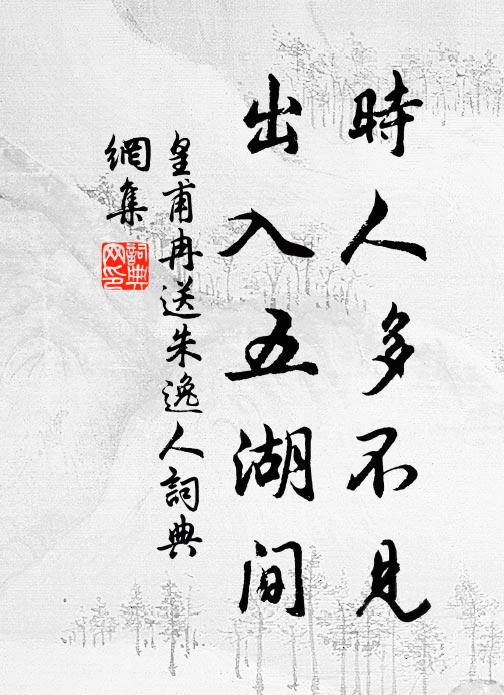 時人多不見
出入五湖間
皇甫冉送朱逸人詞典
網集
詞典
网印